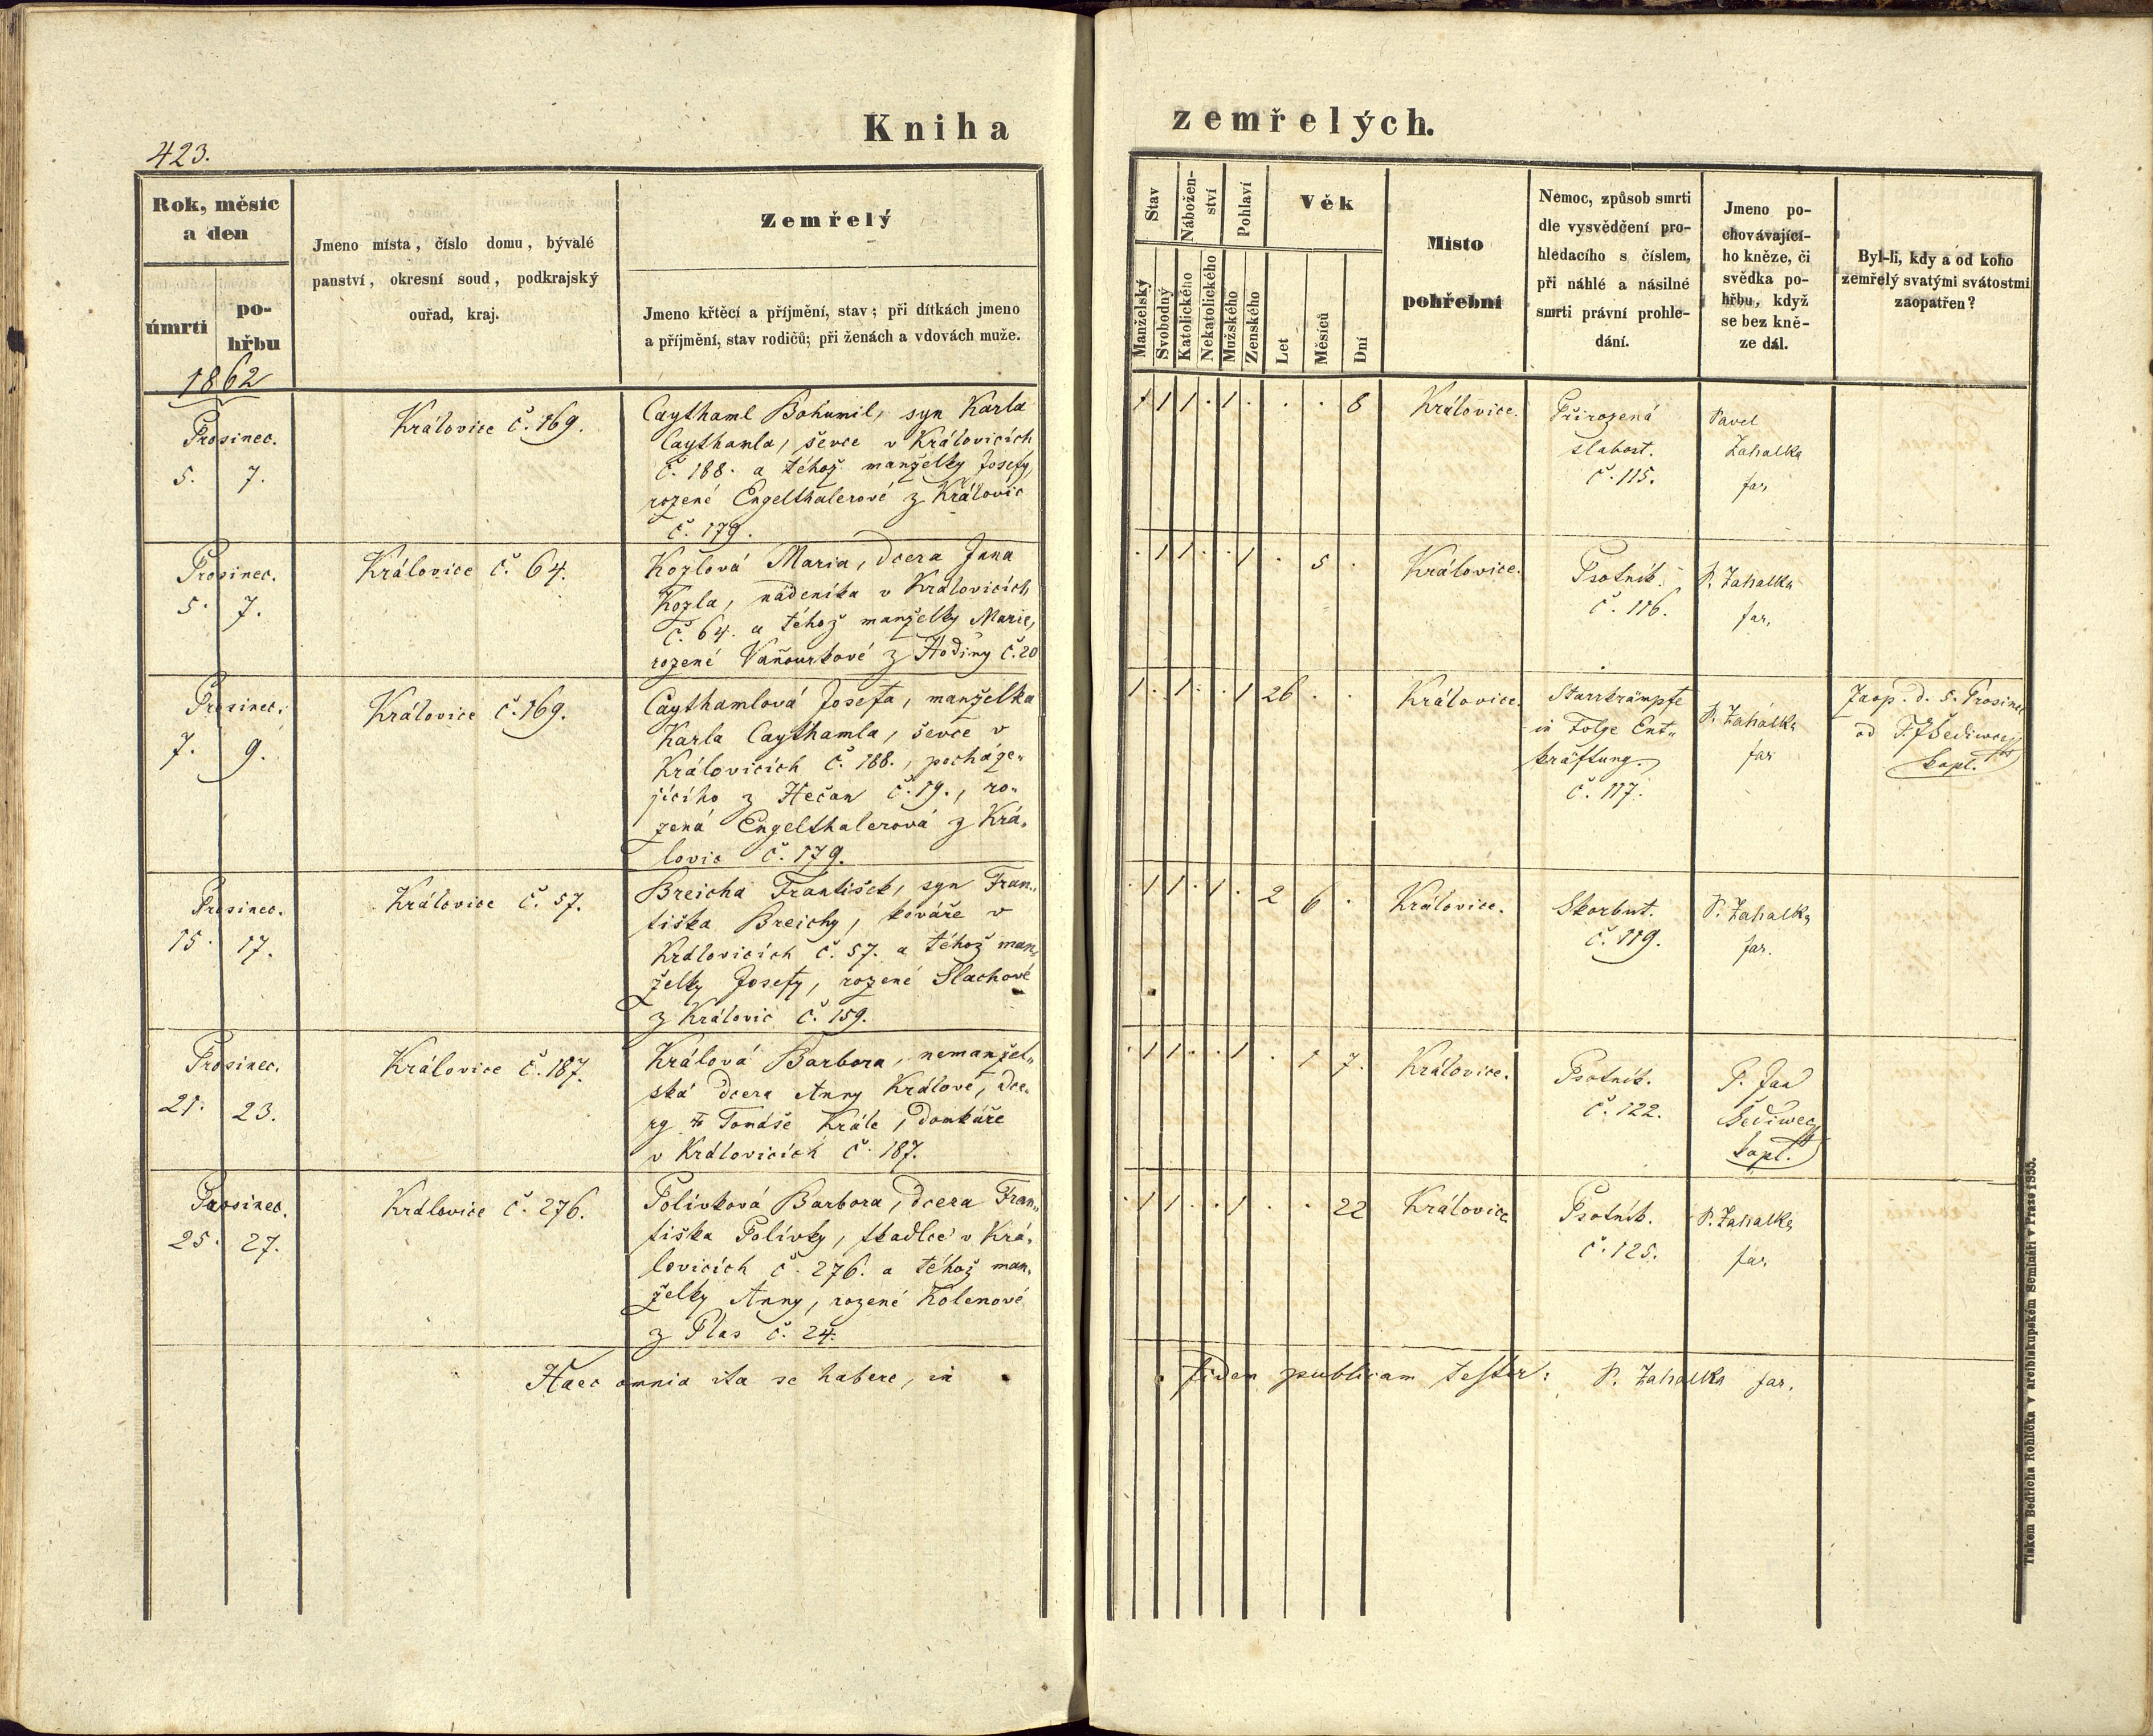 Kniha
423.
Rok, měsíc
a den
úmrtí
po-
hřbu
Jmeno místa, číslo domu, bývalé
panství, okresní soud, podkrajský
ouřad, kraj.
Zemřelý
Jmeno křtěcí a příjmění, stav; při dítkách jmeno
a příjmění, stav rodičů; při ženách a vdovách muže.
1862
Prosinec.
5. 7.
Královice č. 169.
Caythaml Bohumil, syn Karla
Caythamla, ševce v Královicích
č. 188. a téhož manželky Josefy,
rozené Engelthalerové z Královic
č. 179.
Prosinec.
5. 7.
Královice č. 64.
Kozlová Maria, dcera Jana
Kozla, nádeníka v Královicích
č. 64. a téhož manželky Marie,
rozené Vaňourkové z Hodiny č. 20
Prosinec.
7. 9.
Královice č. 169.
Caythamlová Josefa, manželka
Karla Caythamla, ševce v
Královicích č. 188., pocháze„
jícího z Hečan č. 19., ro„
zená Engelthalerová z Krá„
lovic č. 179.
Prosinec.
15. 17.
Královice č. 57.
Breicha František, syn Fran„
tiška Breichy, kováře v
Královicích č. 57. a téhož man„
želky Josefy, rozené Slachové
z Královic č. 159.
Prosinec.
21. 23.
Královice č. 187.
Králová Barbora, nemanžel„
ská dcera Anny Králové, dce„
ry Tomáše Krále, domkáře
v Královicích č. 187.
Prosinec.
25. 27.
Královice č. 276.
Polívková Barbora, dcera Fran„
tiška Polívky, tkadlce v Krá„
lovicích č. 276. a téhož man„
želky Anny, rozené Kolenové
z Plas č. 24.
Haec omnia ita se habere, in
zemřelých.
Stav
Nábožen-
ství
Pohlaví
Věk
Manželský
Svobodný
Katolického
Nekatolického
Mužského
Ženského
Let
Měsíců
Dní
Místo
pohřební
Nemoc, způsob smrti
dle vysvědčení pro-
hledacího s číslem,
při náhlé a násilné
smrti právní prohle-
dání.
Jmeno po-
chovávající-
ho kněze, či
svědka po-
hřbu, když
se bez kně-
ze dál.
Byl-li, kdy a od koho
zemřelý svatými svátostmi
zaopatřen?
1 1 1 . 1 . . . 8
Královice.
Přirozená
slabost.
č. 115.
Pavel
Zahalka
far.
. 1 1 . . 1 . 5 .
Královice.
Psotník.
č. 116.
P. Zahalka
far.
1 . 1 . . 1 26 . .
Královice.
Starrkrämpfe
in Folge Ent„
kräftung.
č. 117.
P. Zahalka
far
Zaop. d. 5. Prosince
od
kapl.
. 1 1 . 1 . 2 6 .
Královice.
Skorbut.
č. 119.
P. Zahalka
far.
. 1 1 . . 1 . 1 7.
Královice.
Psotník.
č. 122.
P. Jan
Šediwec
kapl.
. 1 1 . . 1 . . 22
Královice
Psotník.
č. 125.
P. Zahalka
far.
fidem publicam testor: P. Zahalka far.
Tiskem Bedřicha Rohlíčka v arcibiskupském Semináři v Praze 1855.